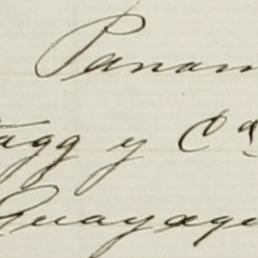 Panam
agg y Cª
Guayaqu